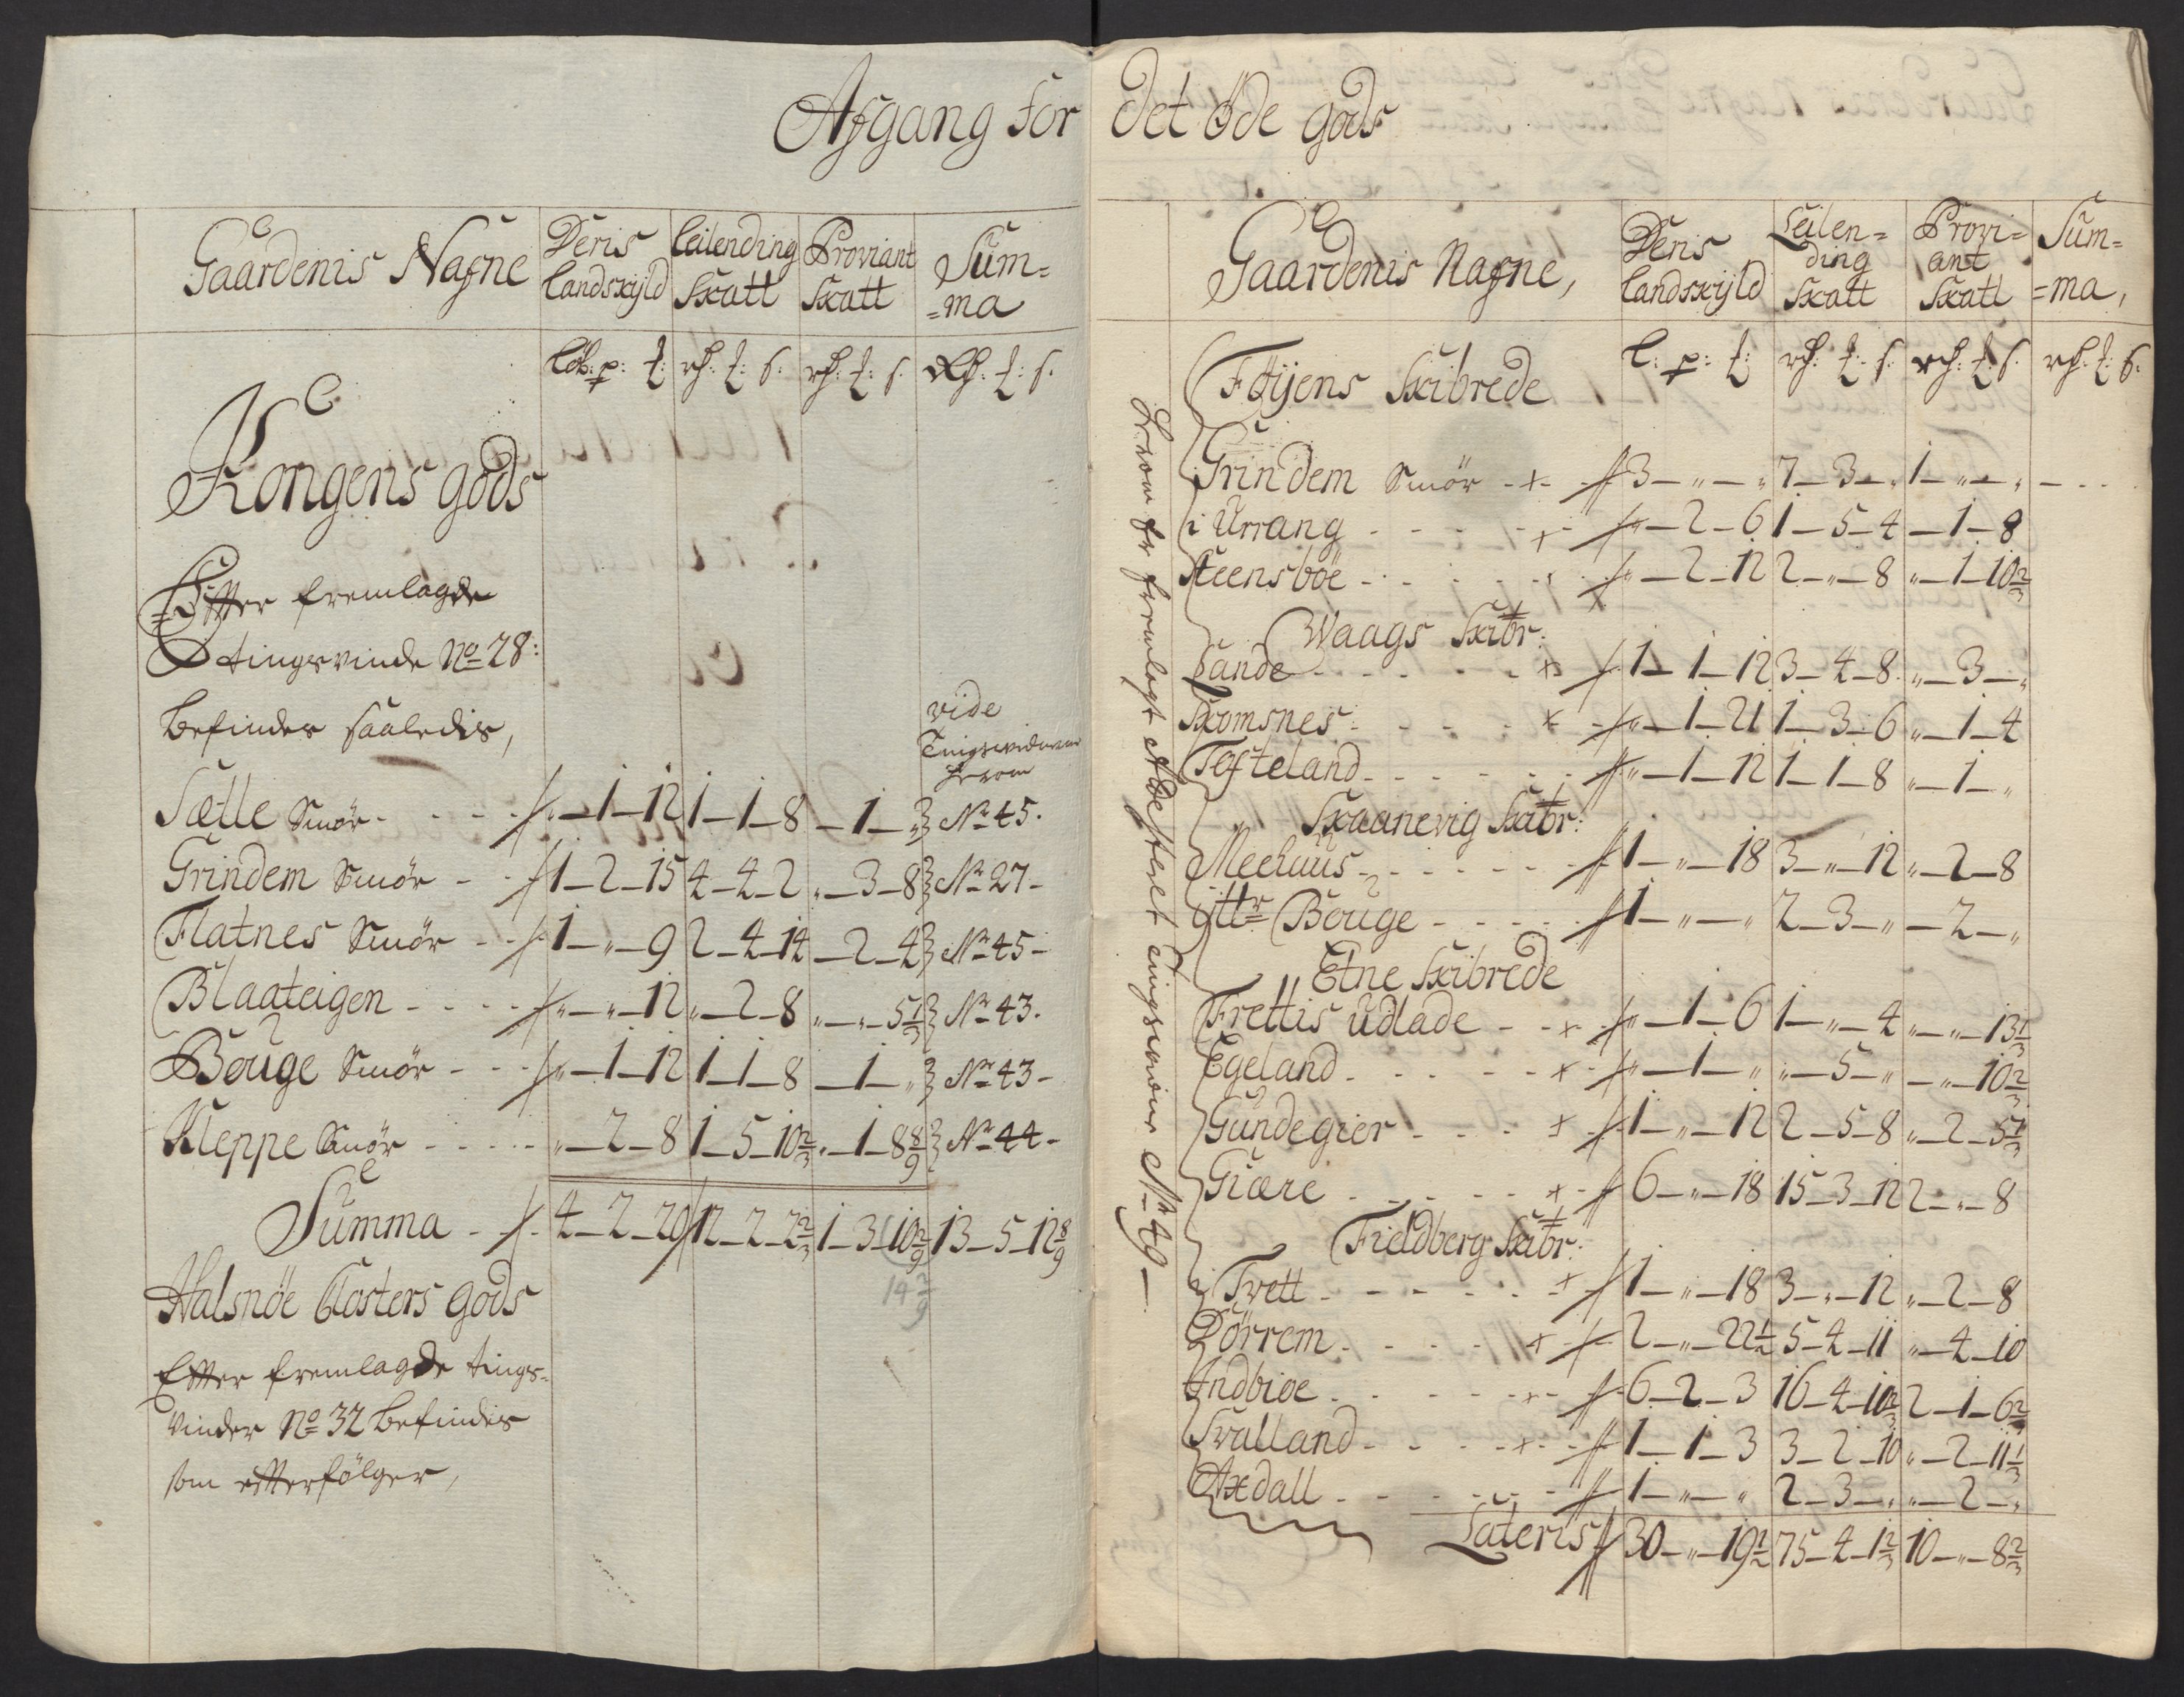 Afgang for det öde gods
Gaardenis Nafne
Deris Landskyld
Leilending Skatt
Proviant Skatt
Sum=
=ma
Löb: p: :
rh: : s.
rh: : s.
Rh: : s.
Kongens gods
Effter fremlagde
tingsvinde No 28:
befindes saaledis,
vide
Tingsvidnerne
herom
Sætle Smör - - - „ - 1 - 12 1 - 1 - 8 - 1 - „ No 45.
Grindem Smör - - 1 - 2 - 15 4 - 4 - 2 „ - 3 - 8 No 27 -
Flatnes Smör - - 1 - „ - 9 2 - 4 - 14 - 2 - 4 No 45 -
Blaateigen - - - - „ - „ - 12 „ - 2 - 8 „ - „ - 5 1/3 No 43.
Bouge Smör - - - „ - 1 - 12 1 - 1 - 8 - 1 - „ No 43 -
Kleppe Smör - - - - „ - 2 - 8 1 - 5 - 10 2/3 „ - 1 - 8 8/9 No 44 -
Summa - - 4 - 2 - 20 12 - 2 - 2 2/3 1 - 3 - 10 2/9 13 - 5 - 12 8/9
14 2/9
Halsnöe Closters gods
Effter fremlagde tings-
vinder No 32 befindis
som efterfölger,
Gaardenis Nafne,
Deris Landskyld
Leilen=
ding
Skatt
Provi=
ant
Skatt
Sum=
=ma,
L: p: :
rh: : s.
rh: : s.
rh: : s.
Föyens Skibrede
Grindem Smör - + - 3 - „ - „ 7 - 3 - „ 1 - „ - „ - - -
i Urrang - - - - + - „ - 2 - 6 1 - 5 - 4 - 1 - 8
Steensböe - - - - + - „ - 2 - 12 2 - „ - 8 „ - 1 - 10 2/3
Waags Skibr:
Sande - - - - + - 1 - 1 - 12 3 - 4 - 8 „ - 3 - „
Skomsnes - - - - + - „ - 1 - 21 1 - 3 - 6 „ - 1 - 4
Tofteland - - - - - „ - 1 - 12 1 - 1 - 8 „ - 1 - „
Skaanevig Skibr:
Meehuus - - - - - 1 - „ - 18 3 - „ - 12 „ - 2 - 8
ittr Bouge - - - - 1 - „ - „ 2 - 3 - „ - 2 - „
Etne Skibrede
Frettis Udlade - - + - „ - 1 - 6 1 - „ - 4 „ - „ - 13 1/3
Egeland - - - - + - „ - 1 - „ „ - 5 - „ - „ - 10 2/3
Gundegier - - - + - 1 - „ - 12 2 - 5 - 8 „ - 2 - 5 1/3
Giære - - - - + - 6 - „ - 18 15 - 3 - 12 2 - „ - 8
Fieldberg Skibr:
Tvett - - - - + - 1 - „ - 18 3 - „ - 12 „ - 2 - 8
Dörrem - - - - + - 2 - „ - 22 1/2 5 - 4 - 11 „ - 4 - 10
Indbioe - - - - + - 6 - 2 - 3 16 - 4 - 10 2/3 2 - 1 - 6 2/3
Svalland - - - - + - 1 - 1 - 3 3 - 2 - 10 „ - 2 - 11 1/3
Axdall - - - - - 1 - „ - „ 2 - 3 - „ „ - 2 - „
Lateris 30 - „ - 19 1/2 75 - 4 - 1 2/3 10 - „ - 8 2/3
herom er fremlagt tingsvidner No 49 -